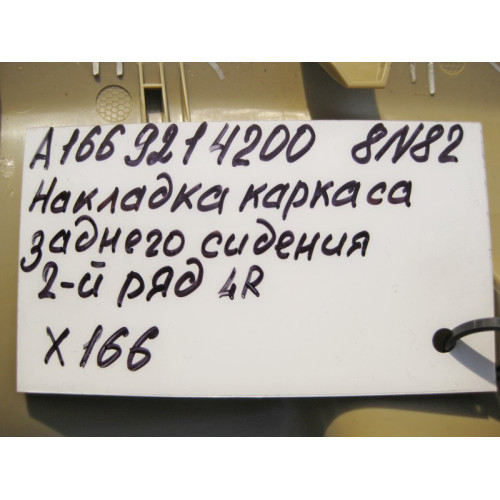 A166 921 4200 8N82
Накладка каркаса
заднего сидения
2-й ряд 4R
X166